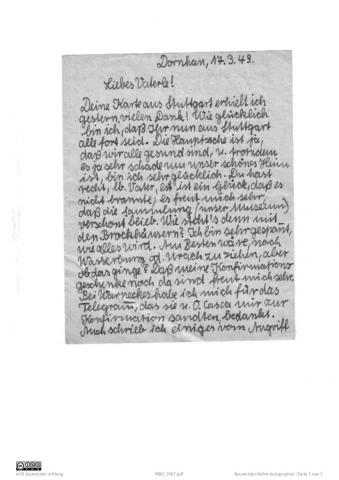 Dornhan, 17.3.43.
Liebes Vaterle!
Deine Karte aus Stuttgart erhielt ich
gestern, vielen Dank! Wie glücklich
bin ich, daß Ihr nun aus Stuttgart
alle fort seid. Die Hauptsache ist ja,
daß wir alle gesund sind, u. trotzdem
es ja sehr schade um unser schönes Heim
ist, bin ich sehr glücklich. Du hast
recht, lb. Vater, es ist ein Glück, daß es
nicht brannte; es freut mich sehr,
daß die Sammlung (unser Museum)
verschont blieb. Wie steht's denn mit
den Brockhäusern? Ich bin sehr gespannt,
wie alles wird. Am Besten wäre, nach
Wasserburg od. Urach zu ziehen, aber
ob das ginge? Daß meine Konfirmations-
geschenke noch da sind freut mich sehr.
Bei Warneckes habe ich mich für das
Telegramm, das sie u. O. Casca mir zur
Konfirmation sandten, bedankt.
Auch schrieb ich einiges vom Angriff
willi baumeister stiftung
MBO_1967.pdf
Baumeister-Dehm-Autographen | Seite 1 von 2